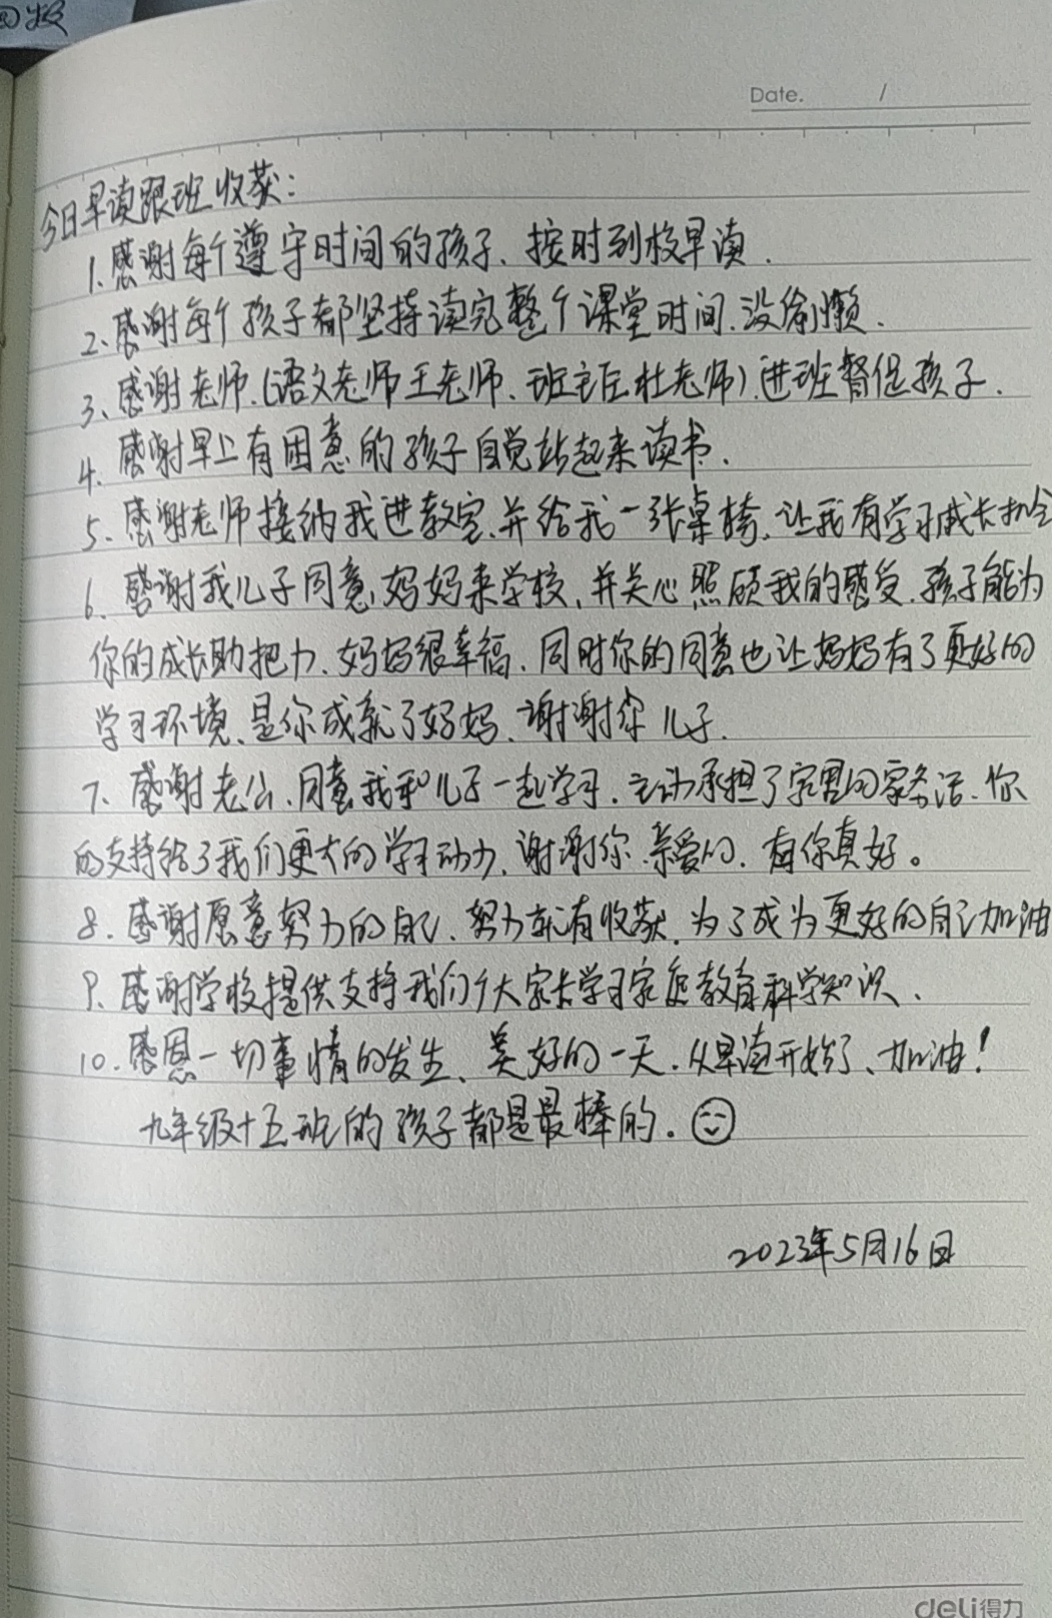 Date. /
今日早读跟班收获:
1. 感谢每个遵守时间的孩子、按时到校早读.
2、感谢每个孩子都坚持读完整个课堂时间.没偷懒.
3、感谢老师.(语文老师王老师、班主任杜老师)进班督促孩子.
4、感谢早上有困意的孩子自觉站起来读书.
5、感谢老师接纳我进教室、并给我一张桌椅,让我有学习成长机会
6、感谢我儿子同意妈妈来学校,并关心照顾我的感受.孩子能为
你的成长助把力、妈妈很幸福、同时你的同意也让妈妈有了更好的
学习环境、是你成就了妈妈、谢谢你儿子.
7、感谢老公、同意我和儿子一起学习.主动承担了家里的家务活、你
的支持给了我们更大的学习动力、谢谢你亲爱的、有你真好。
8.感谢愿意努力的自己、努力就有收获.为了成为更好的自己加油
9.感谢学校提供支持我们广大家长学习家庭教育科学知识、
10.感恩一切事情的发生、美好的一天.从早读开始了、加油!
九年级十五班的孩子都是最棒的.
2023年5月16日
deli得力